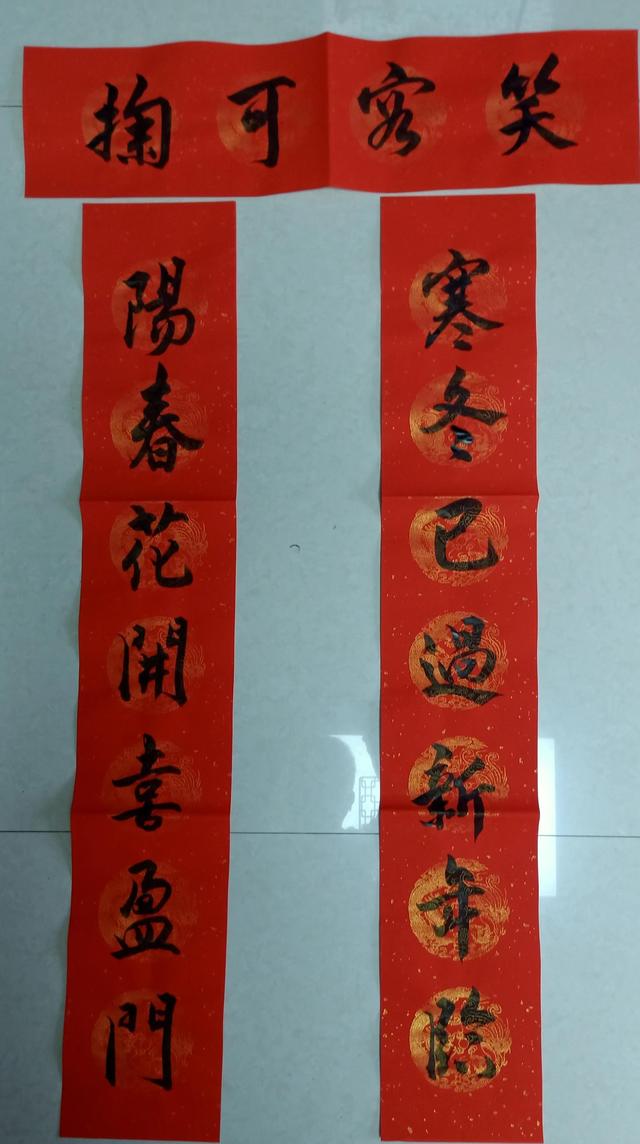 笑容可掬
寒冬已過新年臨
陽春花開喜盈門